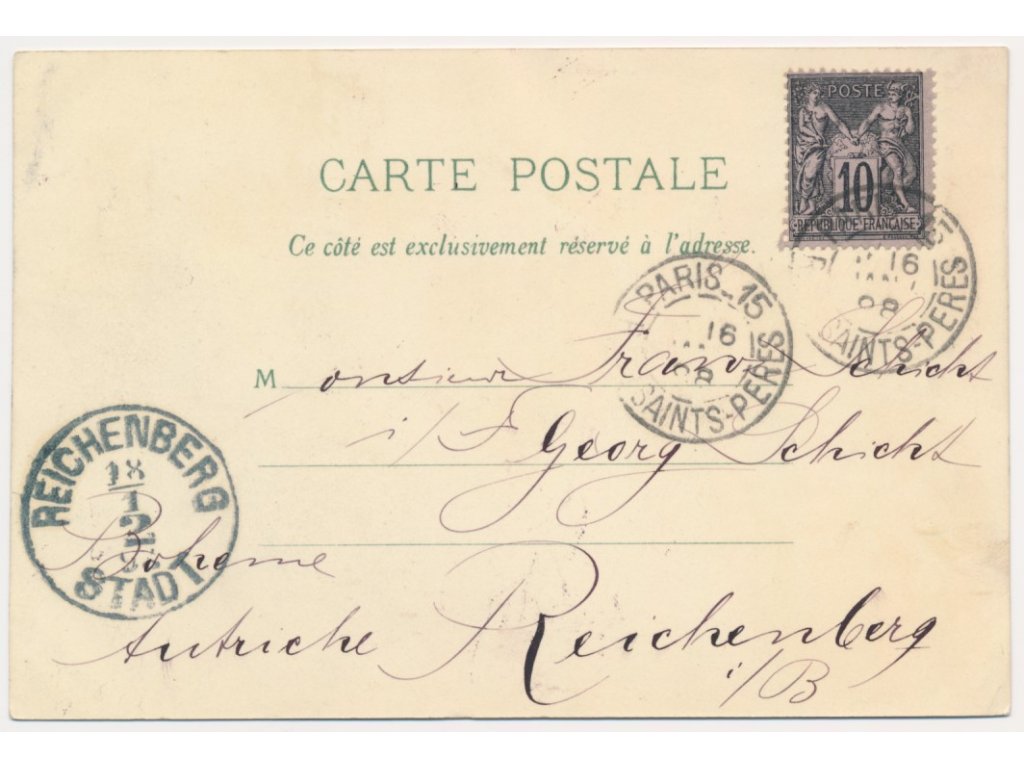 POSTE
10
RÉPUBLIQUE FRANÇAISE
CARTE POSTALE
Ce côté est exclusivement réservé à l'adresse.
PARIS_15
16
98
SAINTS-PÈRES
16
98
SAINTS-PÈRES
Monsieur Franz Schicht
i/F Georg Schicht
REICHENBERG
18
1
2
STADT
Boheme
Autriche Reichenberg
i/B